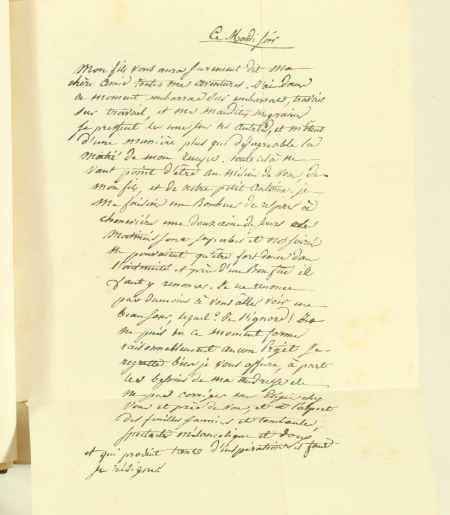 Ce Mardi soir
Mon fils vous aura surement dit ma
chère amie toutes mes aventures. J'ai dans
ce moment embarras sur embarras, travail
sur travail, et me maudites migraines
se pressent les unes sur les autres, et
d'une manière plus que désagréable la
moitié de mon tems, tout cela ne
vaut point d'être au milieu de vous, de
mon fils, et de notre petit Antoine, je
me faisois un Bonheur de repasser à
une douzaine de jours
matinées et nos soirées
ne pouvaient qu'être fort doux dans
l'intimité et près d'un bon feu il
faut y renoncer. Je ne renonce
pas du moins à vous aller voir un
beau jour, lequel? Je l'ignore! Je
ne puis en ce moment former
raisonnablement aucun Projet Je
regrette bien je vous assure, à part
les besoins de ma tendresse de
ne pas corriger mon chez
vous et près de vous, et à l'aspect
des feuilles jaunies et tombantes,
spectacle mélancolique et doux
et qui produit tant d'inspirations il faut
se résigner